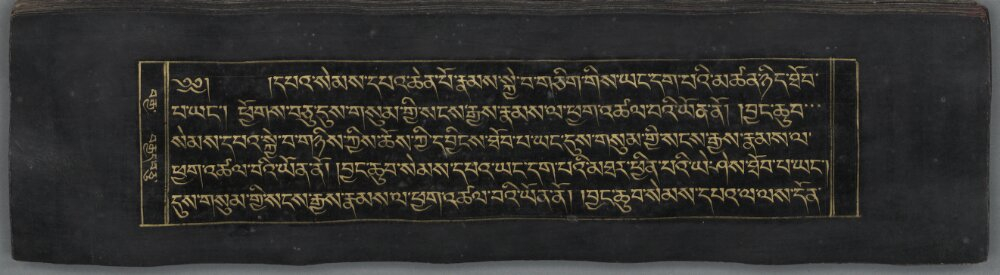 ༄༅། །དཔའ་སེམས་དཔའ་ཆེན་པོ་རྣམས་སྐྱེ་བ་གཅིག་གིས་ཡང་དག་པའི་མཚན་ཉིད་ཐོབ་
པ་ཡང༌། ཕྱོགས་བཅུ་དུས་གསུམ་གྱི་སངས་རྒྱས་རྣམས་ལ་ཕྱག་འཚལ་བའི་ཡོན་ནོ། །བྱང་ཆུབ་
སེམས་དཔའ་སྐྱེ་བ་གཉིས་ཀྱིས་ཆོས་ཀྱི་དབྱིངས་ཐོབ་པ་ཡང་དུས་གསུམ་གྱི་སངས་རྒྱས་རྣམས་ལ་
ཕྱག་འཚལ་བའི་ཡོན་ནོ། །བྱང་ཆུབ་སེམས་དཔའ་ཡང་དག་པའི་མཐར་ཕྱིན་པའི་ཡ་ཤས་ཐོབ་པ་ཡང༌།
དུས་གསུམ་གྱི་སངས་རྒྱས་རྣམས་ལ་ཕྱག་འཚལ་བའི་ཡོན་ནོ། །བྱང་ཆུབ་སེམས་དཔའ་ལ་ལས་དོན་